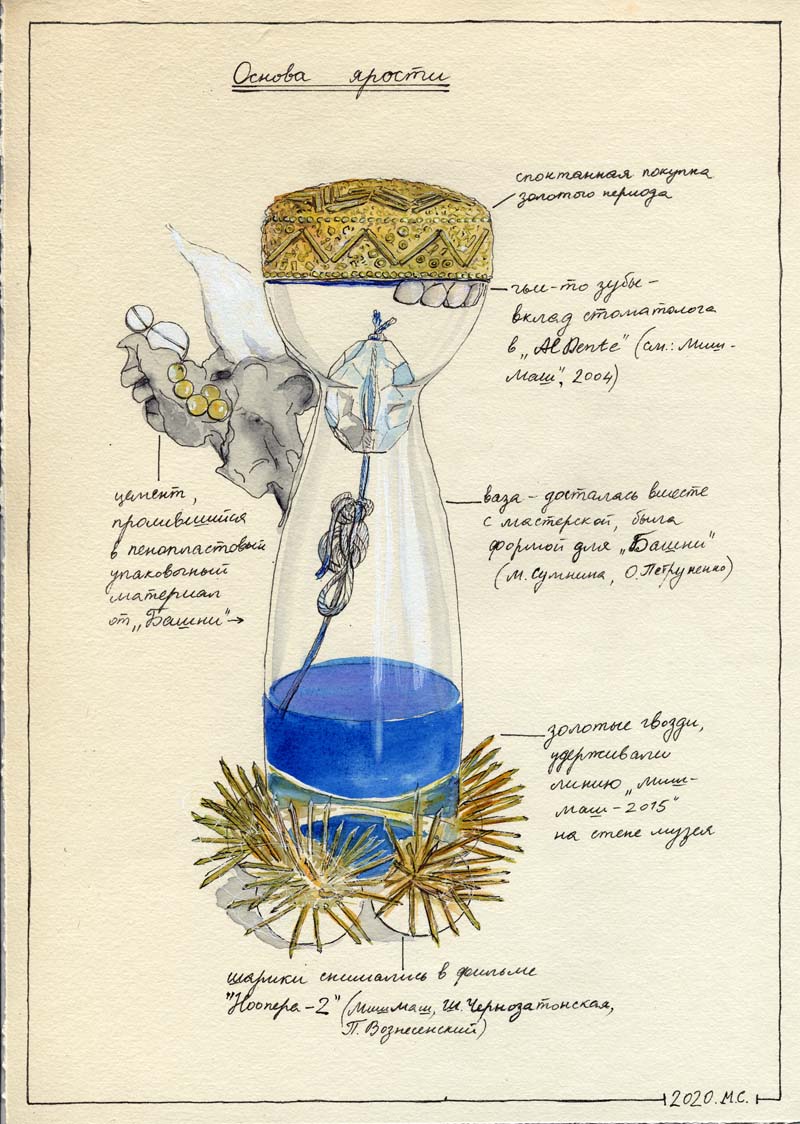 Основа ярости
спонтанная покупка
золотого периода
чьи-то зубы -
вклад стоматолога
в „Al Dente" (см.: Миш-
Маш", 2004)
цемент,
пролившийся
в пенопластовый
упаковочный
материал
от „Башни" →
ваза - досталась вместе
с мастерской, была
формой для „Башни"
(М. Сумнина, О. Петруненко)
золотые гвозди,
удерживали
линию „Миш-
маш-2015"
на стене музея
шарики снимались в фильме
"Ноопера-2" (МишМаш, Ш. Чернозатонская,
П. Вознесенский)
2020. М.С.